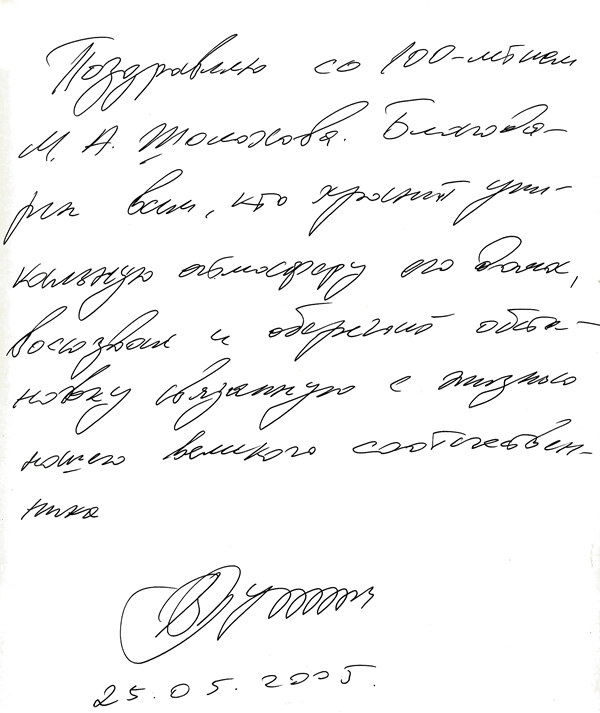 Поздравляю со 100-летием
М. А. Шолохова. Благода-
рю всем, кто хранит уни-
кальную атмосферу его дома,
воссоздал и оберегает обста-
новку связанную с жизнью
нашего великого соотечествен-
ника
В Путин
25.05.2005.